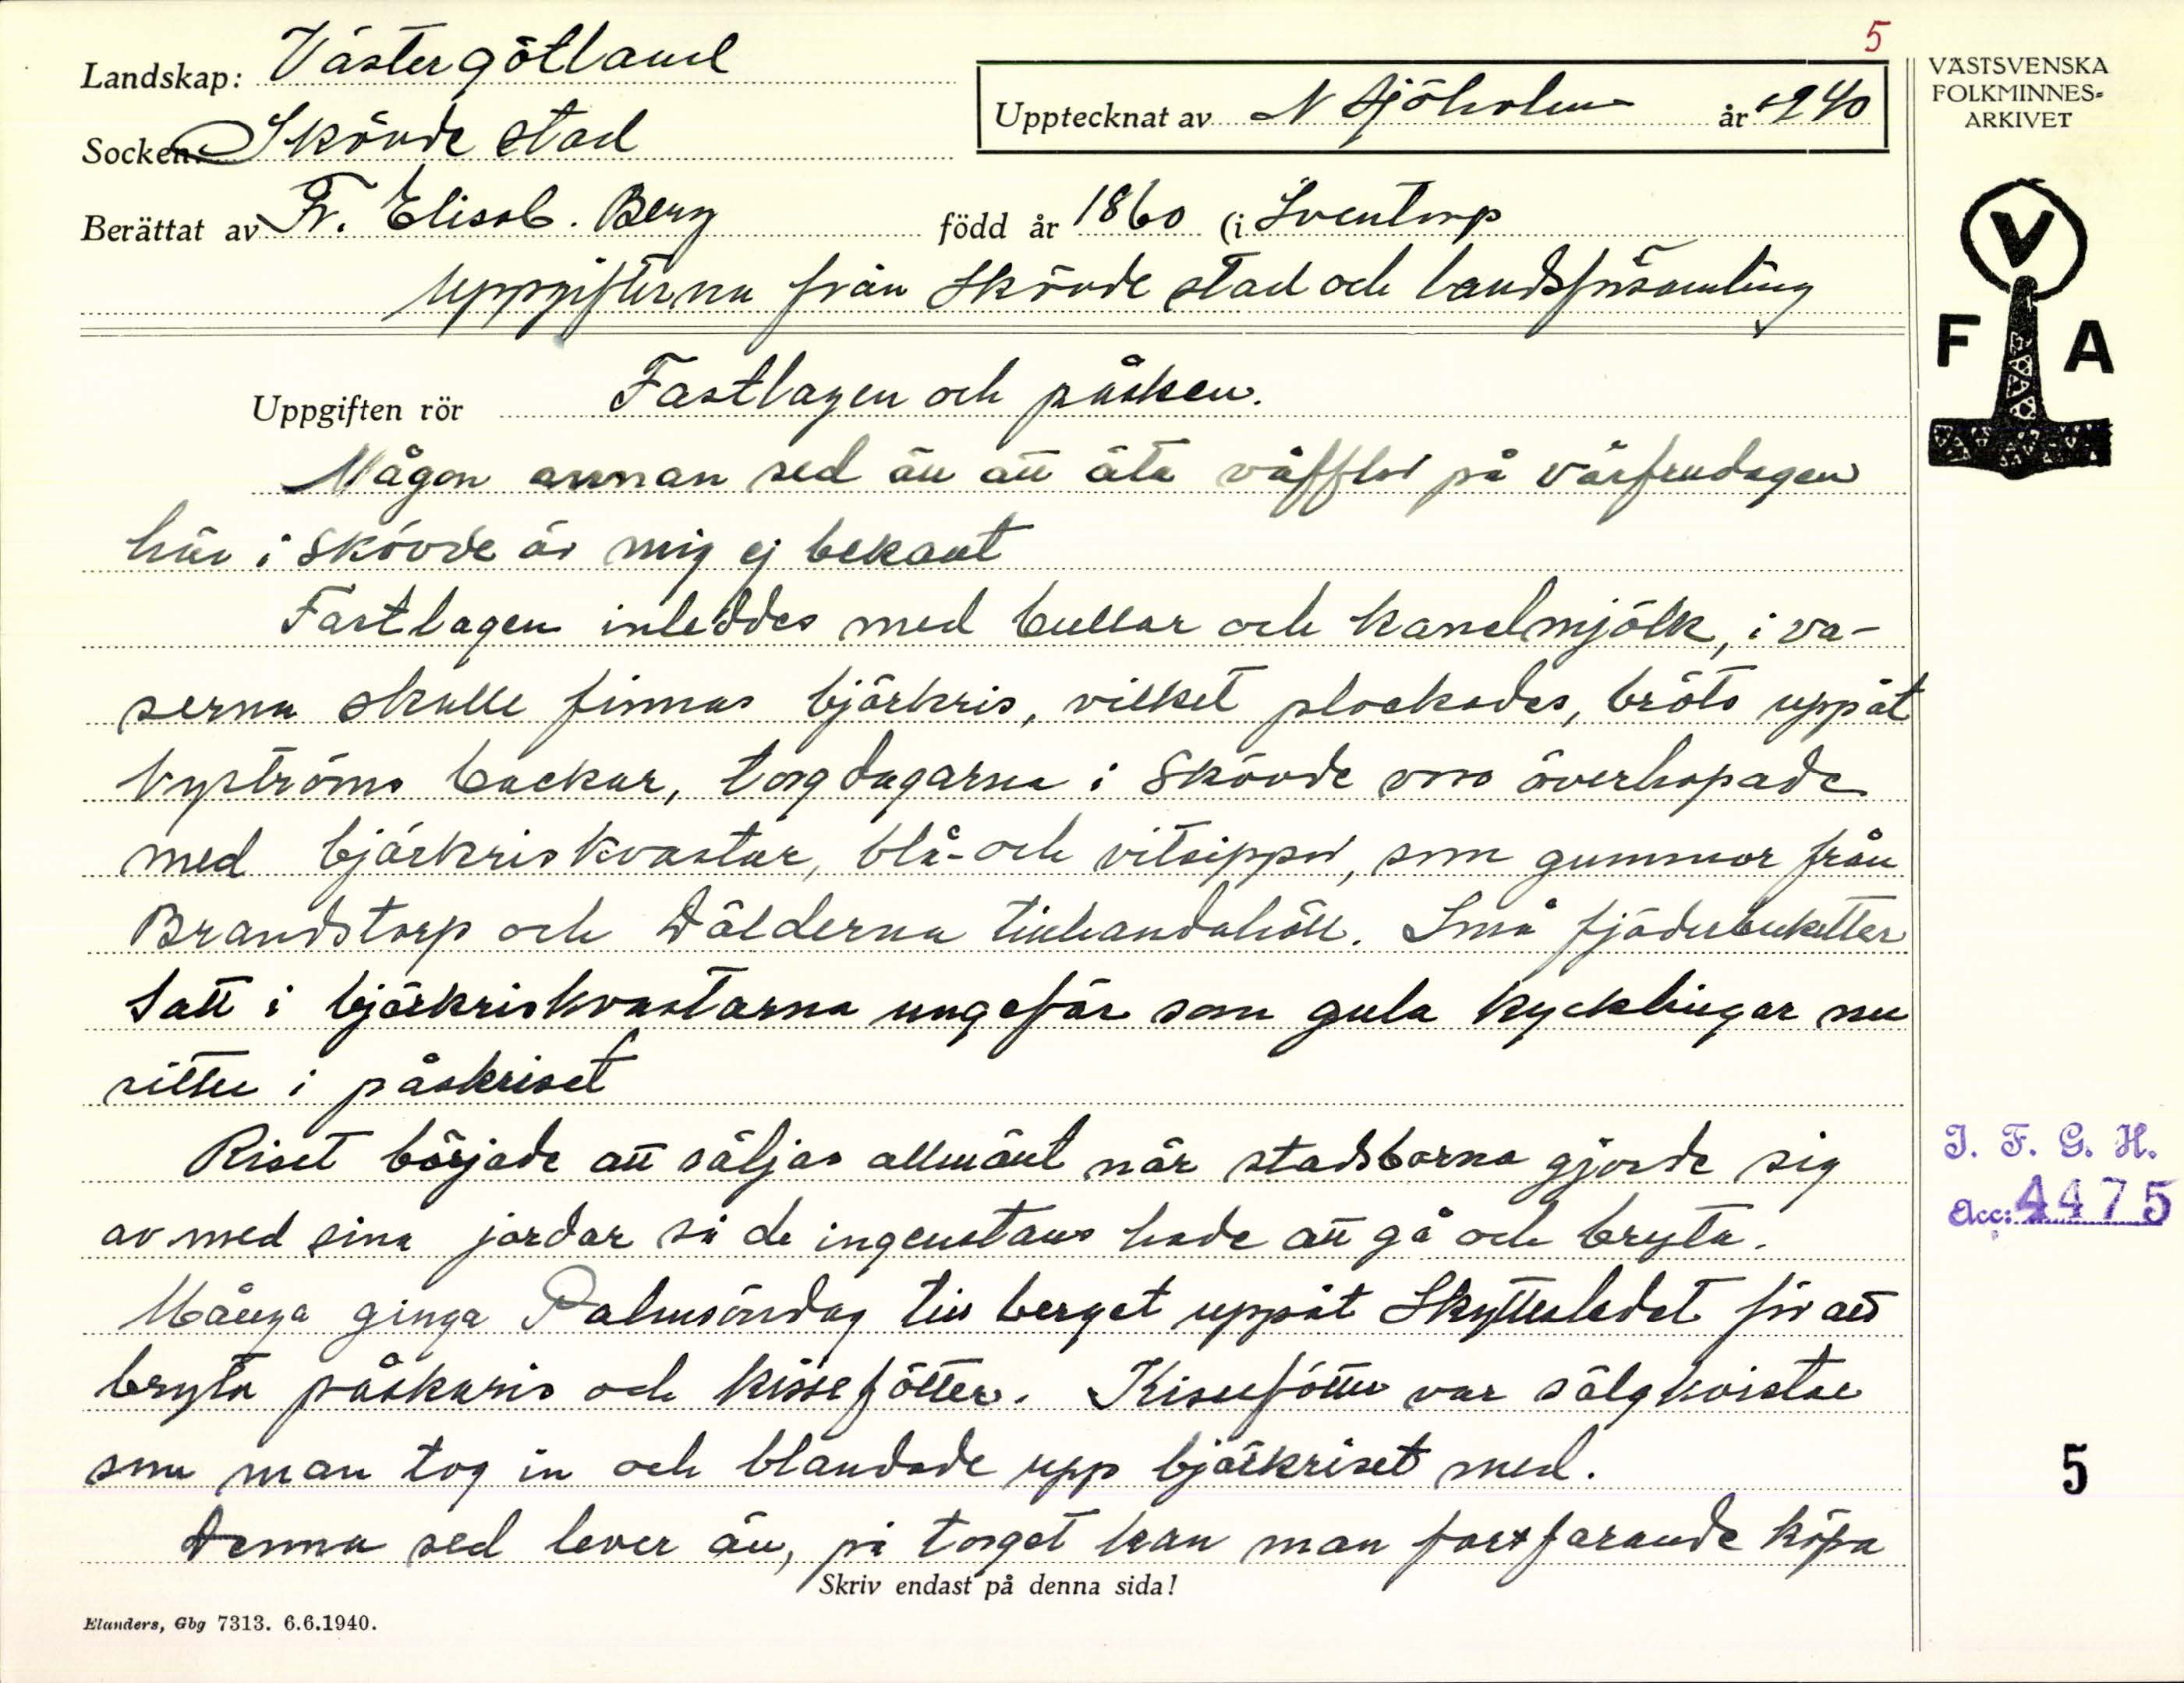 5
Landskap: Västergötland
Upptecknat av N Sjöholm år 1940
Socken: Skövde stad
Berättat av Fr. Elisab. Berg född år 1860 (i Sventorp
Uppgifterna från Skövde stad och landsförsamling
Uppgiften rör Fastlagen och påsken.
Någon annan sed än att äta våfflor på vårfrudagen
här i Skövde är mig ej bekant
Fastlagen inleddes med bullar och kanelmjölk, i va-
serna skulle finnas björkris, vilket plockades, bröts uppåt
Nyströms backar, torgdagarna i Skövde voro överhopade
med björkriskvastar, blå- och vitsippor, som gummor från
Brandstorp och Dälderna tillhandahöll. Små fjäderbuketter
satt i björkriskvastarna ungefär som gula kycklingar nu
sitter i påskriset
Riset började att säljas allmänt när stadsborna gjorde sig
av med sina jordar så de ingenstans hade att gå och bryta.
Många ginga Palmsöndag till berget uppåt Skytteledet för att
bryta påskris och kissefötter. Kissefötter var sälgkvistar
som man tog in och blandade upp björkriset med.
Denna sed lever än, på torget kan man fortfarande köpa
Skriv endast på denna sida!
Elanders, Gbg 7313. 6.6.1940.
VÄSTSVENSKA
FOLKMINNES-
ARKIVET
V
F A
I. F. G. H.
Acc: 4475
5